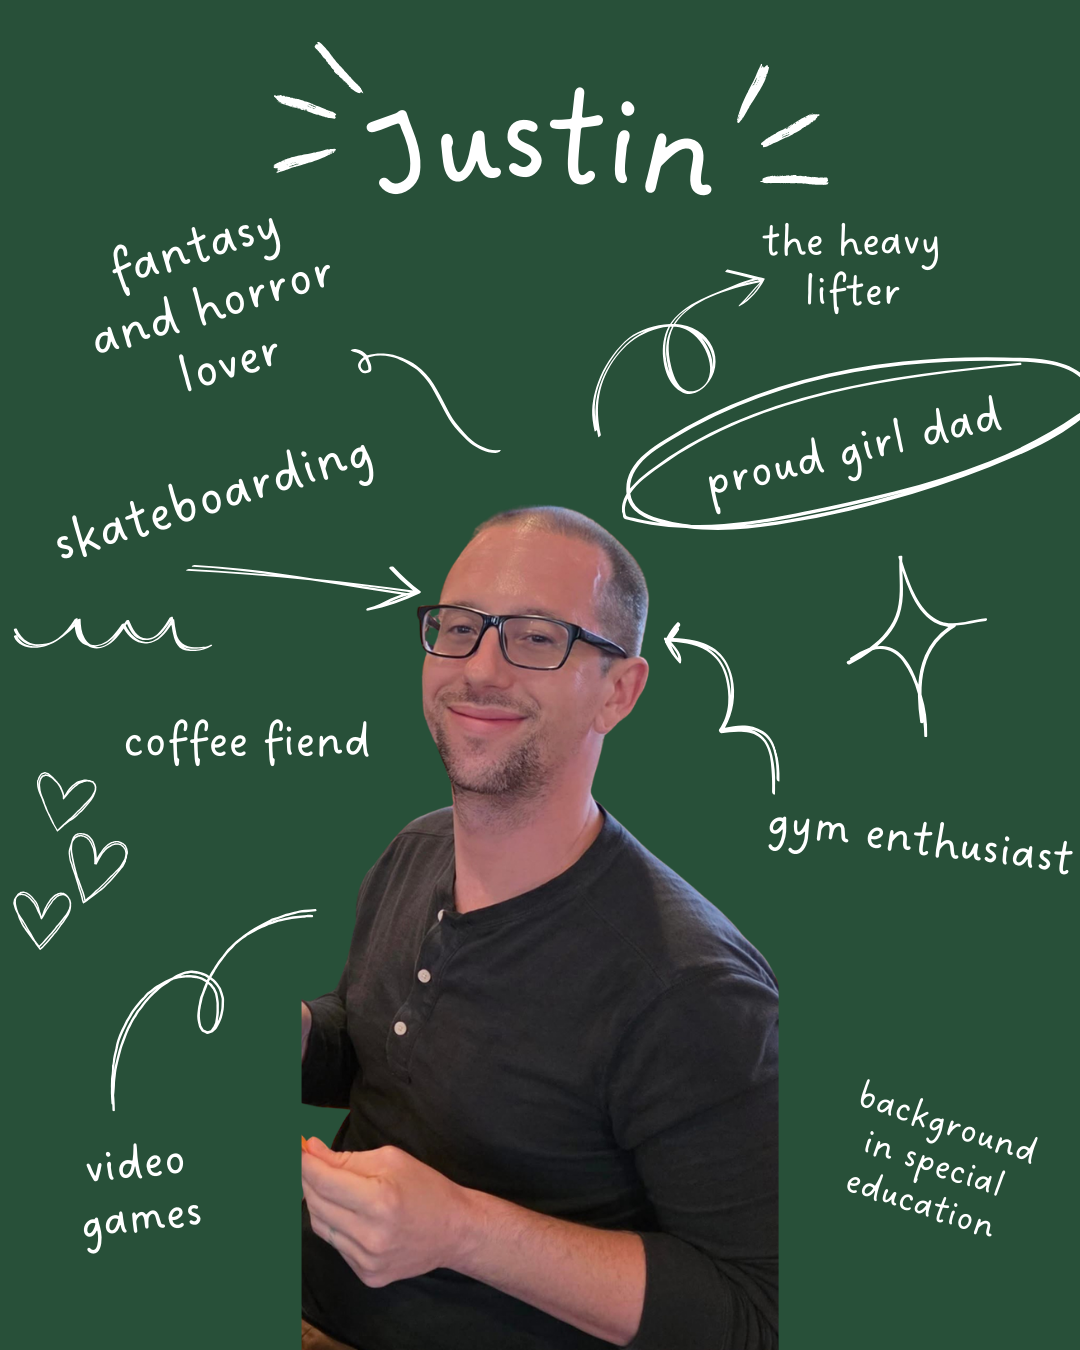 Justin
fantasy
and horror
lover
the heavy
lifter
proud girl dad
skateboarding
coffee fiend
gym enthusiast
video
games
background
in special
education